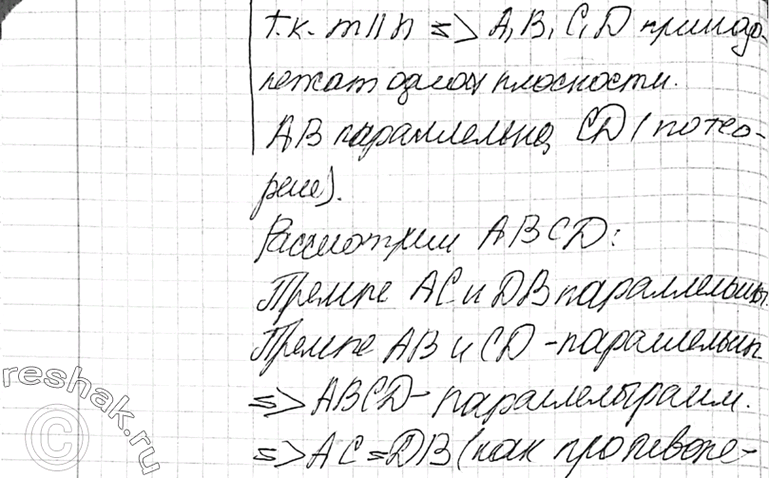 т.к. m || n => A, B, C, D принад-
лежат одной плоскости.
AB параллельна CD (по тео-
реме).
Рассмотрим ABCD:
Прямые AC и DB параллельны.
Прямые AB и CD - параллельны
=> ABCD - параллелограмм.
=> AC = DB (как противопо-
reshak.ru
©